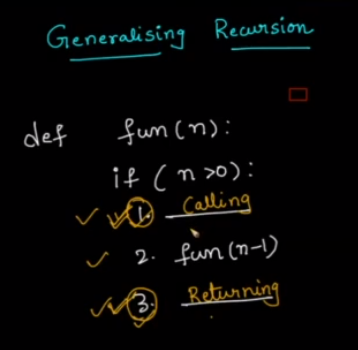 Generalising Recursion
def fun(n):
if (n>0):
1. Calling
2. fun(n-1)
3. Returning